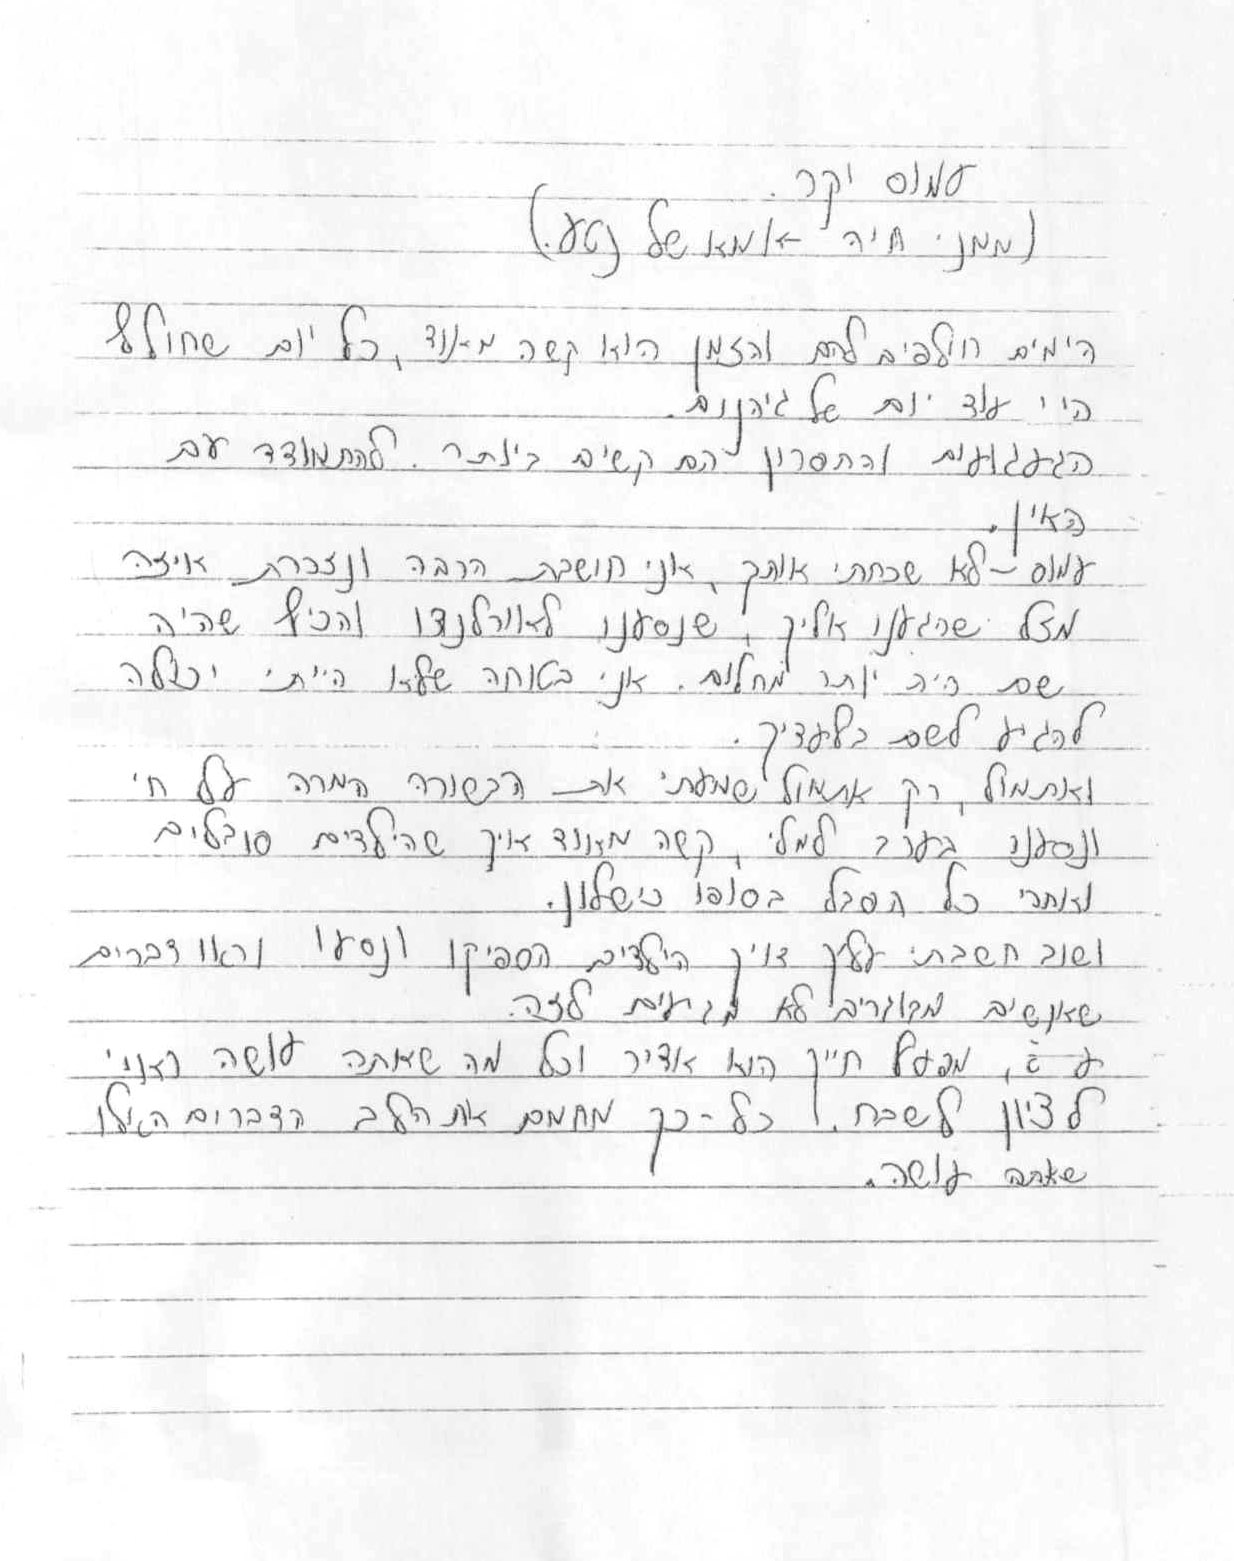 עמוס יקר.
(ממני חיה אמא של נטע.)
הימים חולפים להם והזמן הוא קשה מאוד, כל יום שחולף
היי עוד יום של גיהנום.
הגעגועים והחסרון הם קשים ביותר. להתמודד עם
האין.
עמוס - לא שכחתי אותך, אני חושבת הרבה ונזכרת איזה
מזל שהגענו אליך, שנסענו לאורלנדו והכיף שהיה
שם היה יותר מחלום. אני בטוחה שלא הייתי יכולה
להגיע לשם בלעדיך.
ואתמול, רק אתמול שמעתי את הבשורה המרה על חי
ונסענו בערב למלי, קשה מאוד איך שהילדים סובלים
ואחרי כל הסבל בסופו כישלון.
ושוב חשבתי עליך איך הילדים הספיקו ונסעו וראו דברים
שאנשים מבוגרים לא מגיעים לזה.
מפעל חייך הוא אדיר וכל מה שאתה עושה ראוי
לציון לשבח. כל-כך מחמם את הלב הדברים האלו
שאתה עושה.